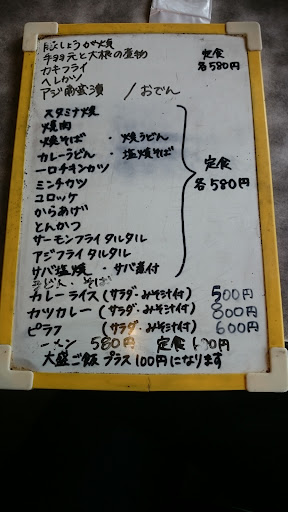 豚しょうが焼
手羽元と大根の煮物
カキフライ
ヘレカツ
アジ南蛮漬 / おでん
定食
各580円
スタミナ焼
焼肉
焼そば ・ 焼うどん
カレーうどん ・ 塩焼そば
一口チキンカツ
ミンチカツ
コロッケ
からあげ
とんかつ
サーモンフライ タルタル
アジフライ タルタル
サバ塩焼 ・ サバ煮付
定食
各580円
うどん ・ そば
カレーライス (サラダ・みそ汁付) 500円
カツカレー (サラダ・みそ汁付) 800円
ピラフ (サラダ・みそ汁付) 600円
ーメン 580円 定食 円
大盛ご飯 プラス100円になります